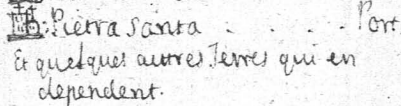 Pietra Santa . . . . . Port
Et quelques autres Terres qui en
dependent.